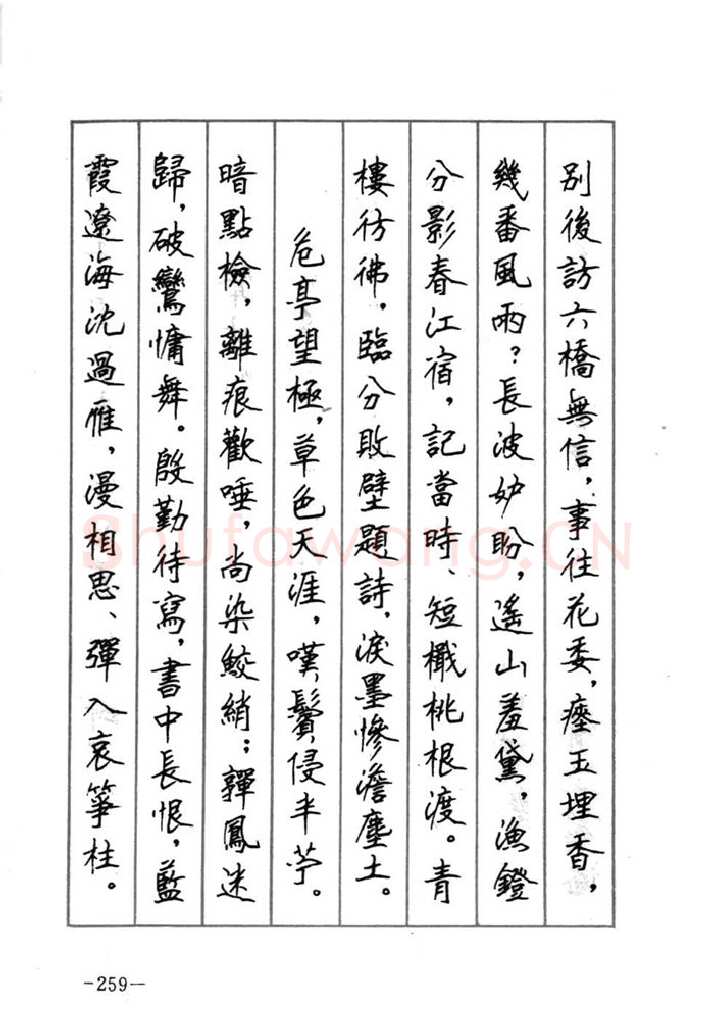 別後訪六橋無信，事往花委，瘞玉埋香，
幾番風雨？長波妒盼，遙山羞黛，漁鐙
分影春江宿，記當時、短檝桃根渡。青
樓彷彿，臨分敗壁題詩，淚墨慘澹塵土。
危亭望極，草色天涯，嘆鬢侵半苧。
暗點檢，離痕歡唾，尚染鮫綃；嚲鳳迷
歸，破鸞慵舞。殷勤待寫，書中長恨，藍
霞遼海沈過雁，漫相思、彈入哀箏柱。
Shufawang.CN
-259-